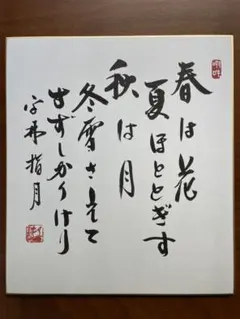 春は花
夏ほととぎす
秋は月
冬雪さえて
すずしかりけり
指月